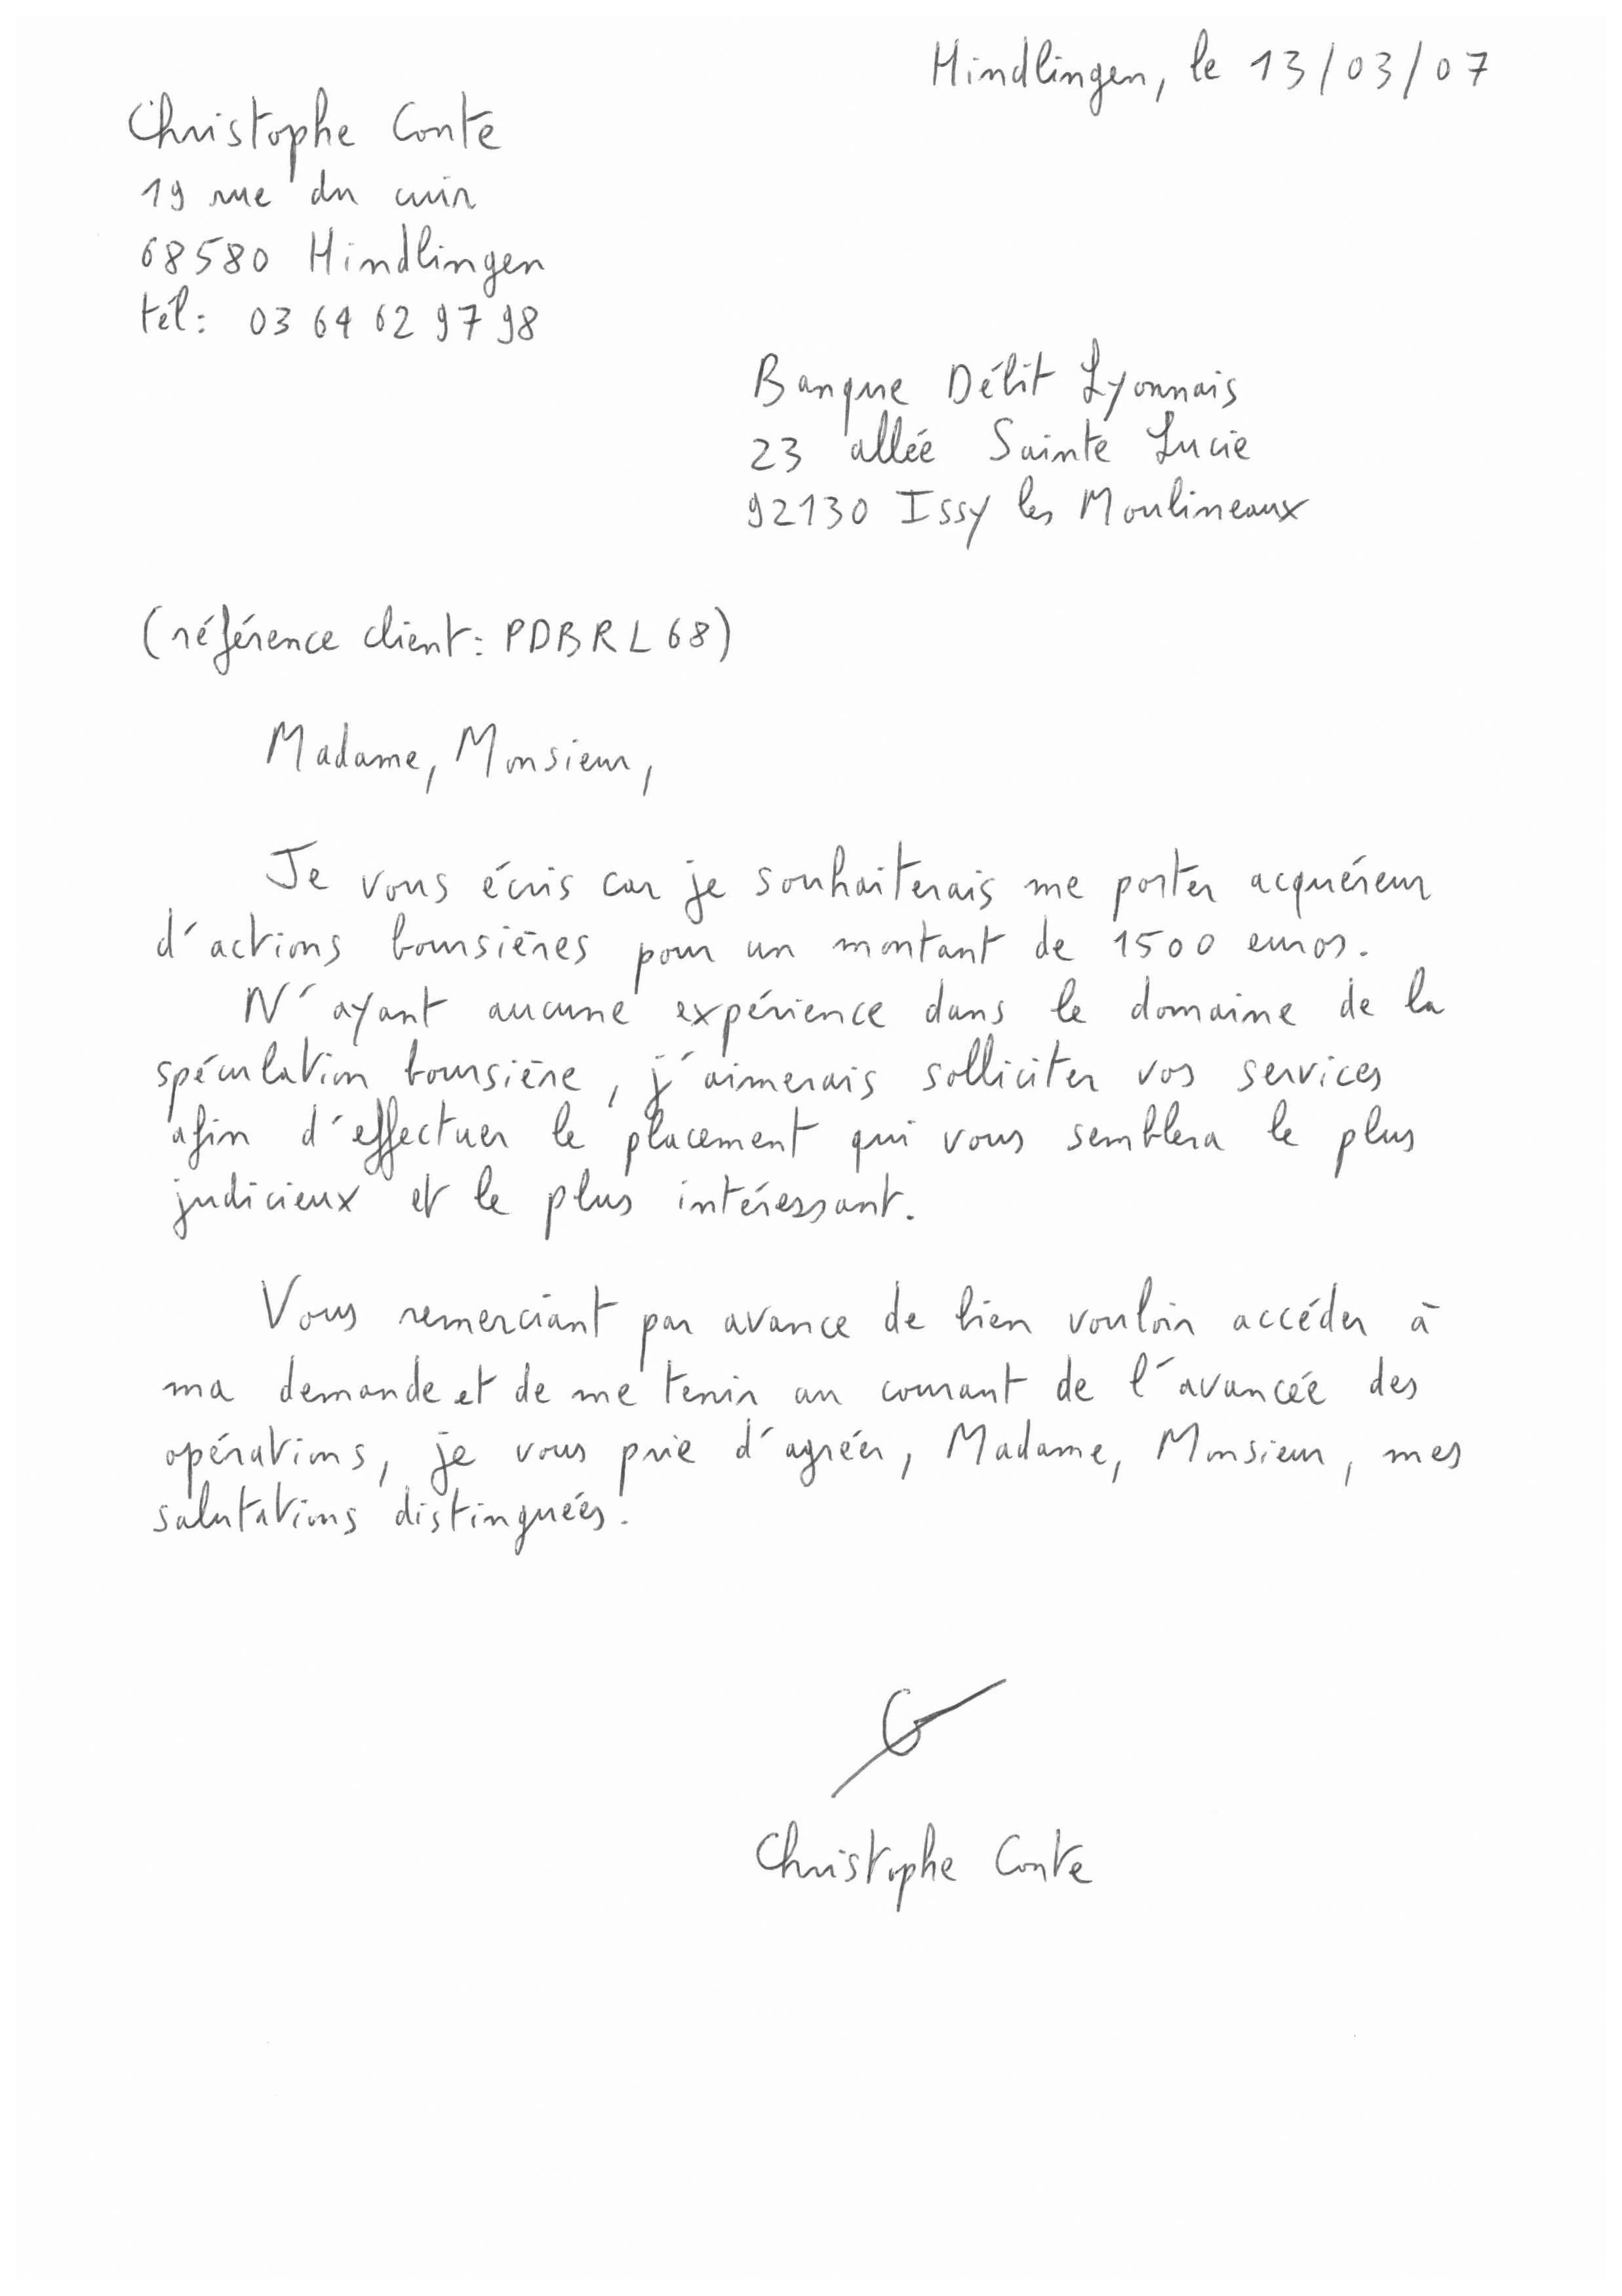 Hindlingen, le 13/03/07
Christophe Conte
19 rue du cuir
68580 Hindlingen
tél: 03 64 62 97 98
Banque Débit Lyonnais
23 allée Sainte Lucie
92130 Issy les Moulineaux
(référence client: PDBRL68)
Madame, Monsieur,
Je vous écris car je souhaiterais me porter acquéreur
d'actions boursières pour un montant de 1500 euros.
N'ayant aucune expérience dans le domaine de la
spéculation boursière, j'aimerais solliciter vos services
afin d'effectuer le placement qui vous semblera le plus
judicieux et le plus intéressant.
Vous remerciant par avance de bien vouloir accéder à
ma demande et de me tenir au courant de l'avancée des
opérations, je vous prie d'agréer, Madame, Monsieur, mes
salutations distinguées.
Christophe Conte